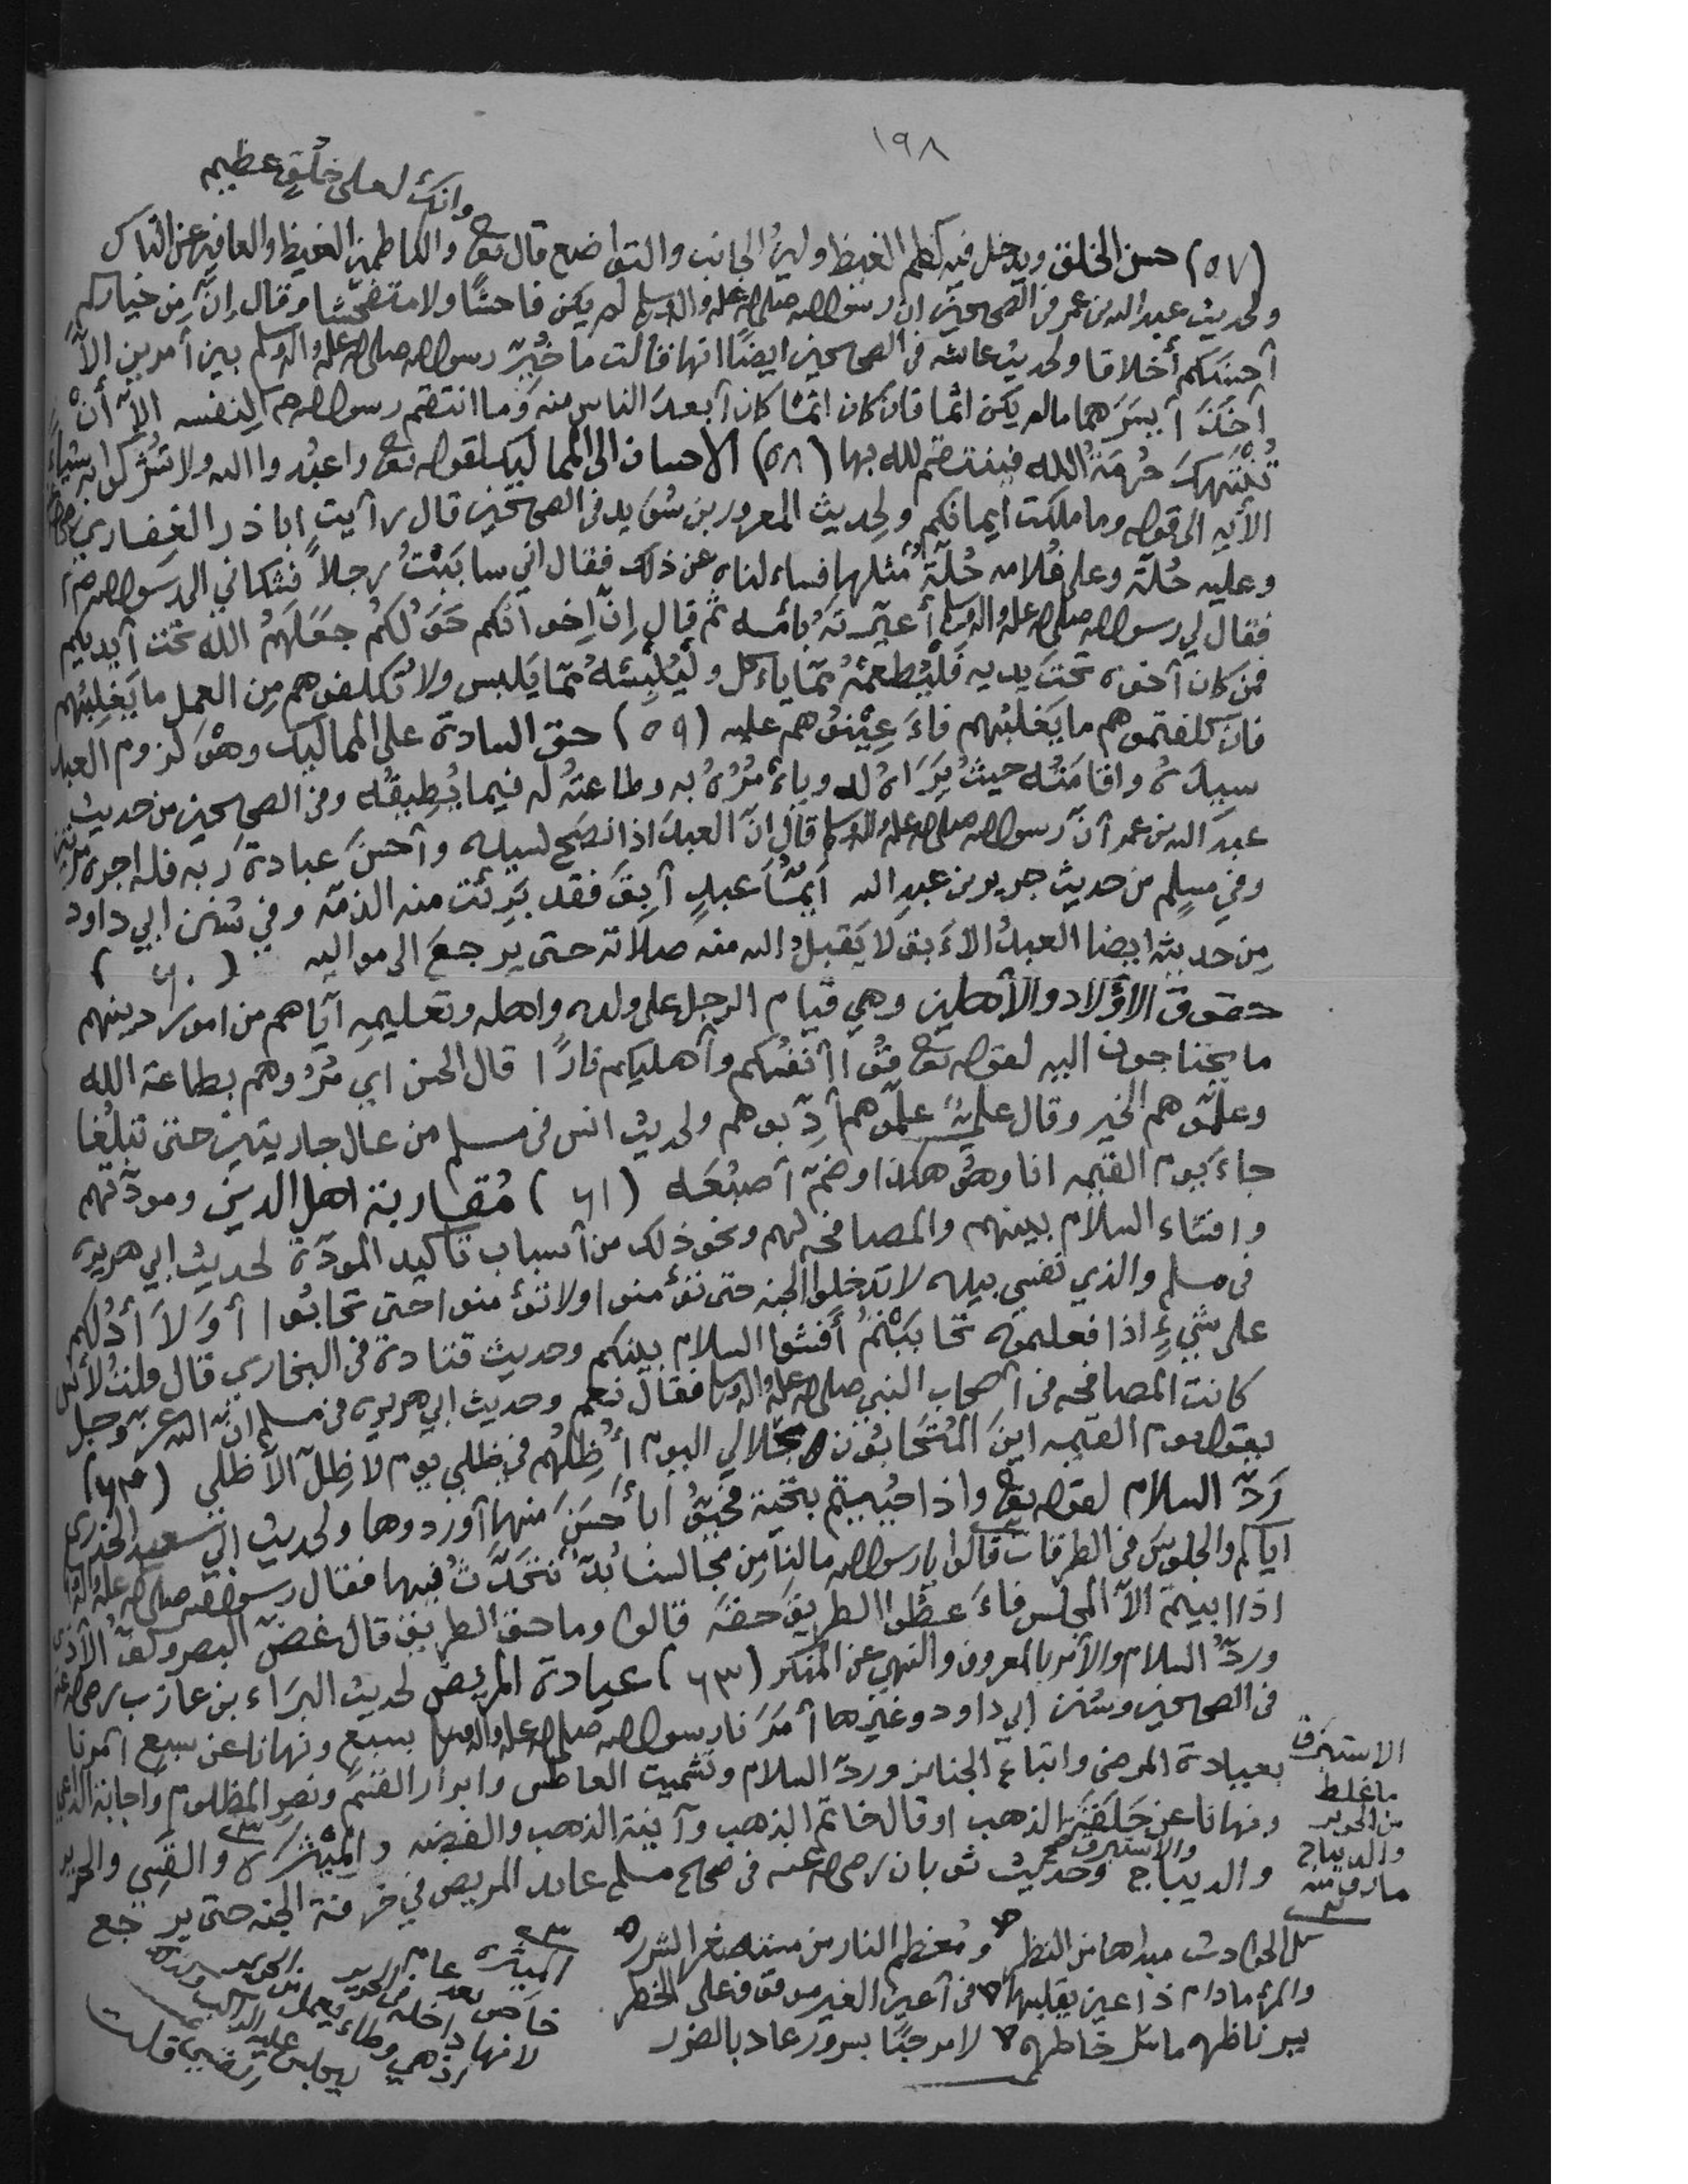 ١٩٨
وانك لعلى خُلُقٍ عظيم
(٥٧) حسن الخلق ويدخل فيه كظم الغيظ ولين الجانب والتواضع قال تع والكاظمين الغيظ والعافين عن الناس
ولحديث عبد الله بن عمر في الصحيحين ان رسول الله صلى الله عليه واله وسلم لم يكن فاحشًا ولا متفحّشا وقال إنّ مِن خياركم
أحسنكم أخلاقا ولحديث عائشه في الصحيحين ايضًا انها قالت ما خُيِّرَ رسول الله صلى الله عليه واله وسلم بين أمرين الاّ
أخَذَ أيسَرَهما مالم يكن اثما فان كان اثمًا كان أبعدَ الناس منه وَما انتقم رسول الله صلم لِنفسه الاّ أنْ
تُنْتَهكَ حُرمَةُ الله فينتقم لله بها (٥٨) الاحسان الى المماليك لقوله تع واعبُدوا الله ولا تُشركوا به شيئاً
الأيه الى قوله وما ملكت ايمانكم ولِحديث المعرور بن سُوَيد في الصحيحين قال رأيت اباذر الغفاري
وعليه حُلّة وعلى غُلامه حُلّةٌ مُثلها فساءلناه عن ذلك فقال اني سابَبْتُ رجلاً فشكاني الى رسول الله صلم
فقال لي رسول الله صلى الله عليه واله وسلم أعيّرتَهُ بامّه ثم قال إنّ اِخوانكم خَوَلُكُم جعَلَهمُ الله تحت أيديكم
فمن كان أخوه تحتَ يديه فَلْيُطعِمْهُ ممّا ياءكل ولْيُلْبِسْهُ ممّا يَلبس ولا تُكلفوهم مِن العمل ما يَغلِبُهم
فان كلفتموهم ما يَغلبُهم فاءَعِيْنُوهم عليه (٥٩) حق السادة على المماليك وهوَ لزوم العبد
سيدَهُ واقامَتُه حيثُ يَرَاهُ له وياءمُرُهُ به وطاعتُهُ له فيما يُطِيقُه وفي الصحيحين من حديث
عبدَ الله بن عمر أنّ رسول الله صلى الله عليه واله وسلم قال إنّ العبدَ اذا نصَحَ لسيده وأحسنَ عبادةَ ربه فله اجره مرّتين
وفي مسلِم من حديث جرير بن عبد الله أيّمَا عبدٍ أبقَ فقد بَرِئَت منه الذمّه وفي سُنن ابي داود
مِن حديثه ايضا العبدُ الاءبق لا يَقبلُ الله منه صلاَته حتى يرجعَ الى مواليه (٦٠)
حقوق الاَوْلاد والأهلين وهي قيام الرجل على ولده واهله وتعليمهِ أيّاهم من امور دينهم
ما يحتاجون اليه لقوله تع قُوا أنفُسكم وأهليكم نارًا قال الحسن اي مُرُوهم بطاعة الله
وعلّموهم الخير وقال علي علّموهم أدّبوهم ولحديث انس في مسلم من عال جاريتين حتى تبلُغا
جاءَ يوم القيمه انا وهُو هكذا وضمّ أصبُعَه (٦١) مُقاربة اهل الدين ومودّتهم
وافشاء السلام بينهم والمصافحه لهم ونحو ذلك من أسباب تاكيد المودّة لحديث ابي هريرة
في مسلم والذي نفسي بيده لا تدخلوا الجنه حتى تؤمنوا ولا تؤمنوا حتى تحابُّوا أوَلاَ أدُلكم
على شيءٍ اذا فعلتموه تحابَبْتمُ أفشُوا السلام بينكم وحديث قتادة في البخاري قال قلتُ لأنس
كانت المصافحه في أصحاب النبي صلى الله عليه واله وسلم فقال نعم وحديث ابي هريره في مسلم انّ الله عز وجل
يقول يوم القيمه اينَ المُتَحابُون بجلالي اليوم أُظِلهُم في ظلي يوم لا ظِلّ الاّ ظلي (٦٢)
رَدّ السلام لقوله تع واذا حُيّيتم بتحيّة فحَيُّوا باءحسَنَ منها أوردوها ولحديث ابي سعيد الخذري
اياكم والجلوسَ في الطرقات قالوا يا رسول الله مالنا مِن مجالسنا بُدّ نتحَدّثُ فيها فقال رسول الله صلى الله عليه واله
اذا ابيتم الاّ المجلس فاءعطُوا الطريقَ حقّه قالوا وما حق الطريق قال غضّ البصر وكفّ الأذى
وردُّ السلام والأمر بالمعروف والنهي عن المنكر (٦٣) عيادة المريض لحديث البرَاء بن عازب رضي الله عنه
في الصحيحين وسُنن ابي داود وغيرها أمَرَنا رسول الله صلى الله عليه واله وسلم بسبعٍ ونهانا عن سبع أمرنا
بعيادة المرضى واتباع الجنائز وردّ السلام وتشميت العاطس وابرار القسَم ونصرِ المظلوم واجابة الداعي
ونهانا عن حَلقَة الذهب او قال خاتم الذهب وآنية الذهب والفضه والميْثَرة والقَسّي والحرير
والاستبرق صح
والديباج وحديث ثوبان رضي الله عنه في صحاح مسلم عائد المريض في خرفة الجنه حتى يرجع
الاستبرق
ما غلظ
من الحرير
والديباج
مارق منه
كل الحوادث مبداها من النظر ومُعظم النار من مستصغر الشرر
والمرؤ مادام ذا عين يقلبها في أعين الغير موقوف على الخطر
يسر ناظره ماضر خاطره لا مرحبًا بسرور عاد بالضرر
الميثره عام
خاص بعد
لانها داخله في الحرير
اذ هي وطاء يعمل من الحرير
يجلس عليه الراكب